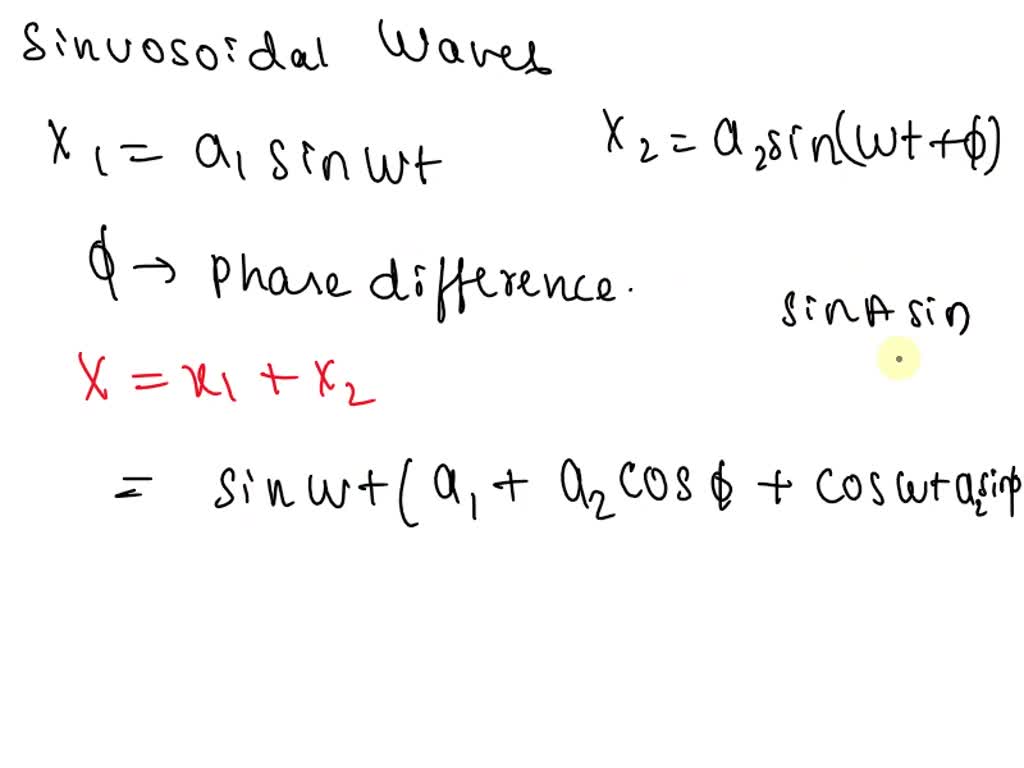 Sinusoidal Waves
x₁ = a₁ sin ωt
x₂ = a₂ sin(ωt + ϕ)
ϕ → phase difference.
sin A sin
X = x₁ + x₂
= sin ωt (a₁ + a₂ cos ϕ + cos ωt a₂ sin ϕ